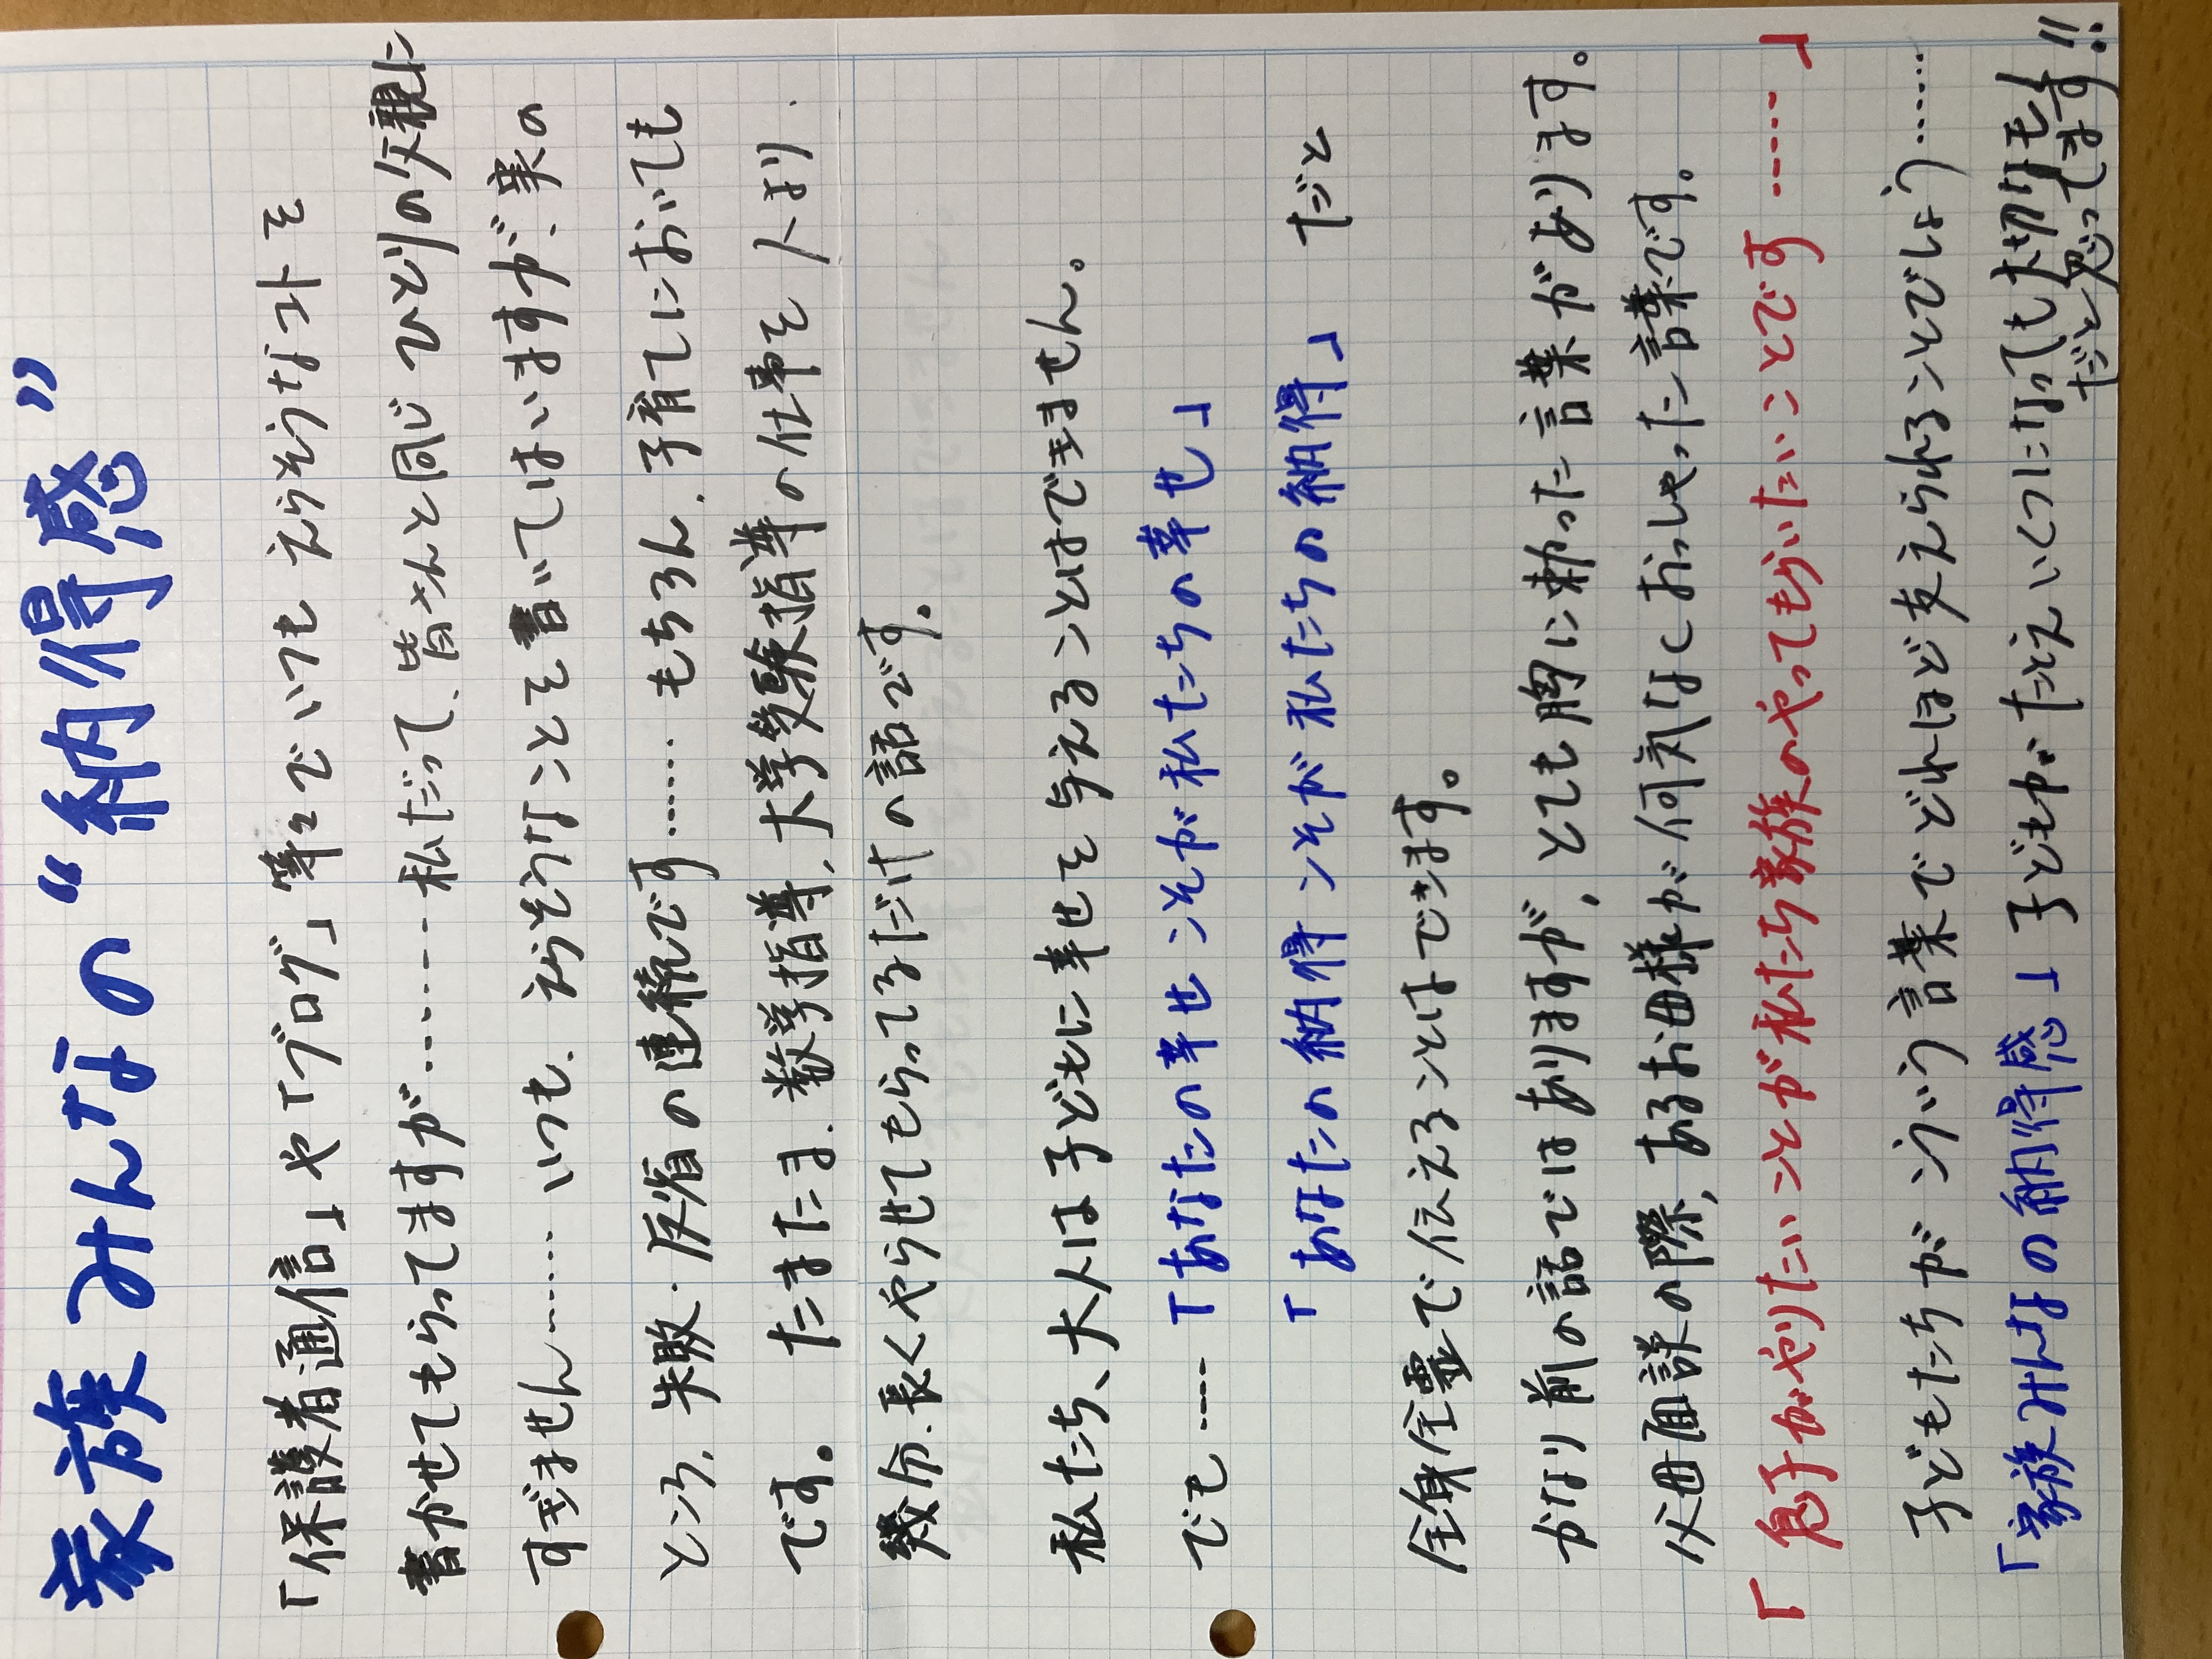 家族みんなの“納得感”
「保護者通信」や「ブログ」等々でいつも えらそうなコトを
書かせてもらってますが………私だって、皆さんと同じ ひとりの父親に
すぎません…… いつも、えらそうなことを書いてはいますが、実の
ところ、失敗・反省の連続です…… もちろん、子育てにおいても
です。 たまたま、数学指導、大学受験指導の仕事を 人より、
幾分、長くやらせてもらってるだけの話です。
私たち、大人は子どもに幸せを与えることはできません。
でも…… 「あなたの幸せこそが私たちの幸せ」
「あなたの納得こそが私たちの納得」 だと
全身全霊で伝えることはできます。
かなり前の話ではありますが、とても胸に刺さった言葉があります。
父母面談の際、あるお母様が何気なくおっしゃった言葉です。
「息子がやりたいことが私たち家族のやってもらいたいことです……」
子どもたちが こういう言葉でどれほど支えられることでしょう……
「家族みんなの納得感」子どもが たとえいくつになっても大切なモノ
だと思ってます!!